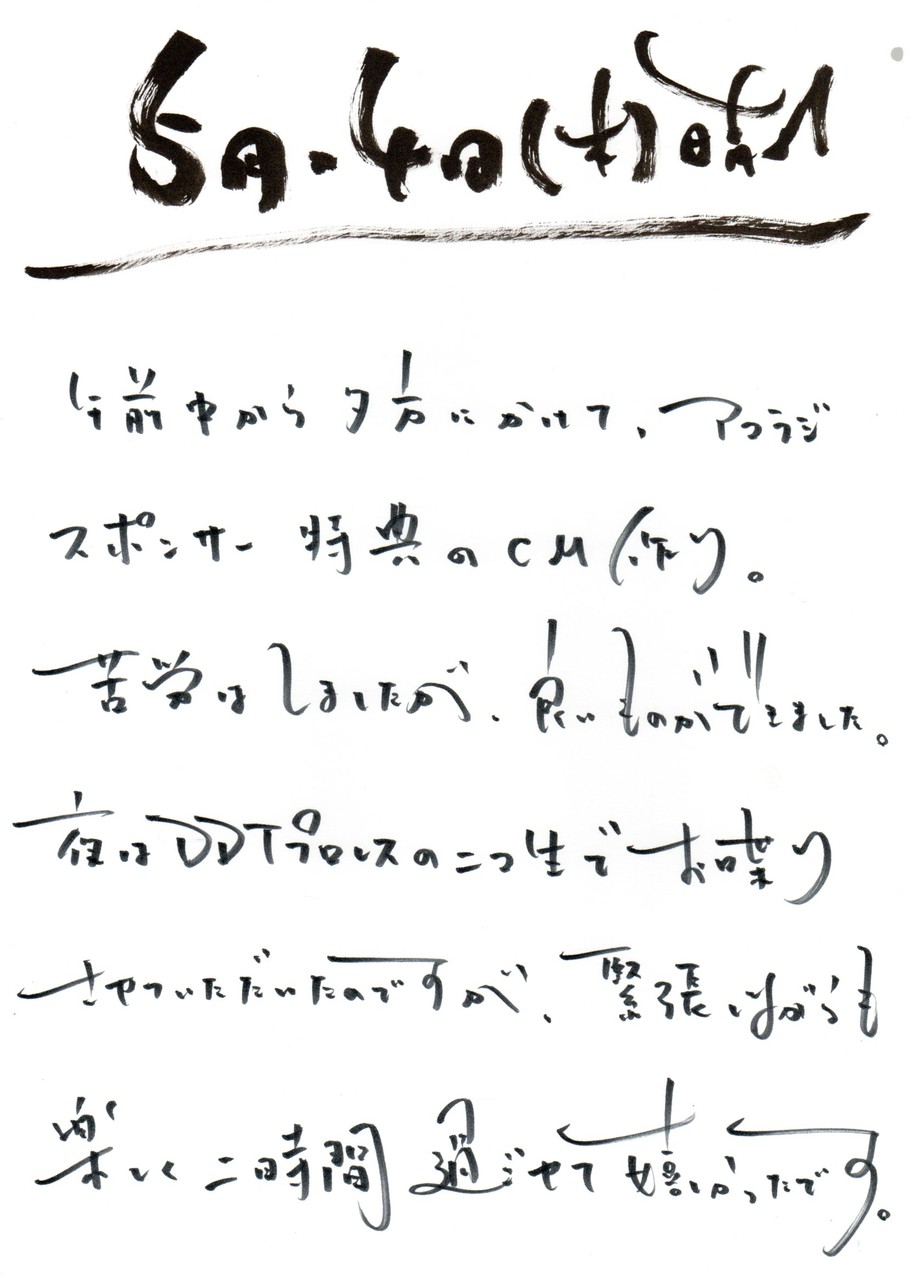 5月・4日(木) 晴れ
午前中から夕方にかけて、アコラジ
スポンサー特典のCM作り。
苦労はしましたが、良いものができました。
夜はDDTプロレスのニコ生でお喋り
させていただいたのですが、緊張しながらも
楽しく二時間過ごせて嬉しかったです。